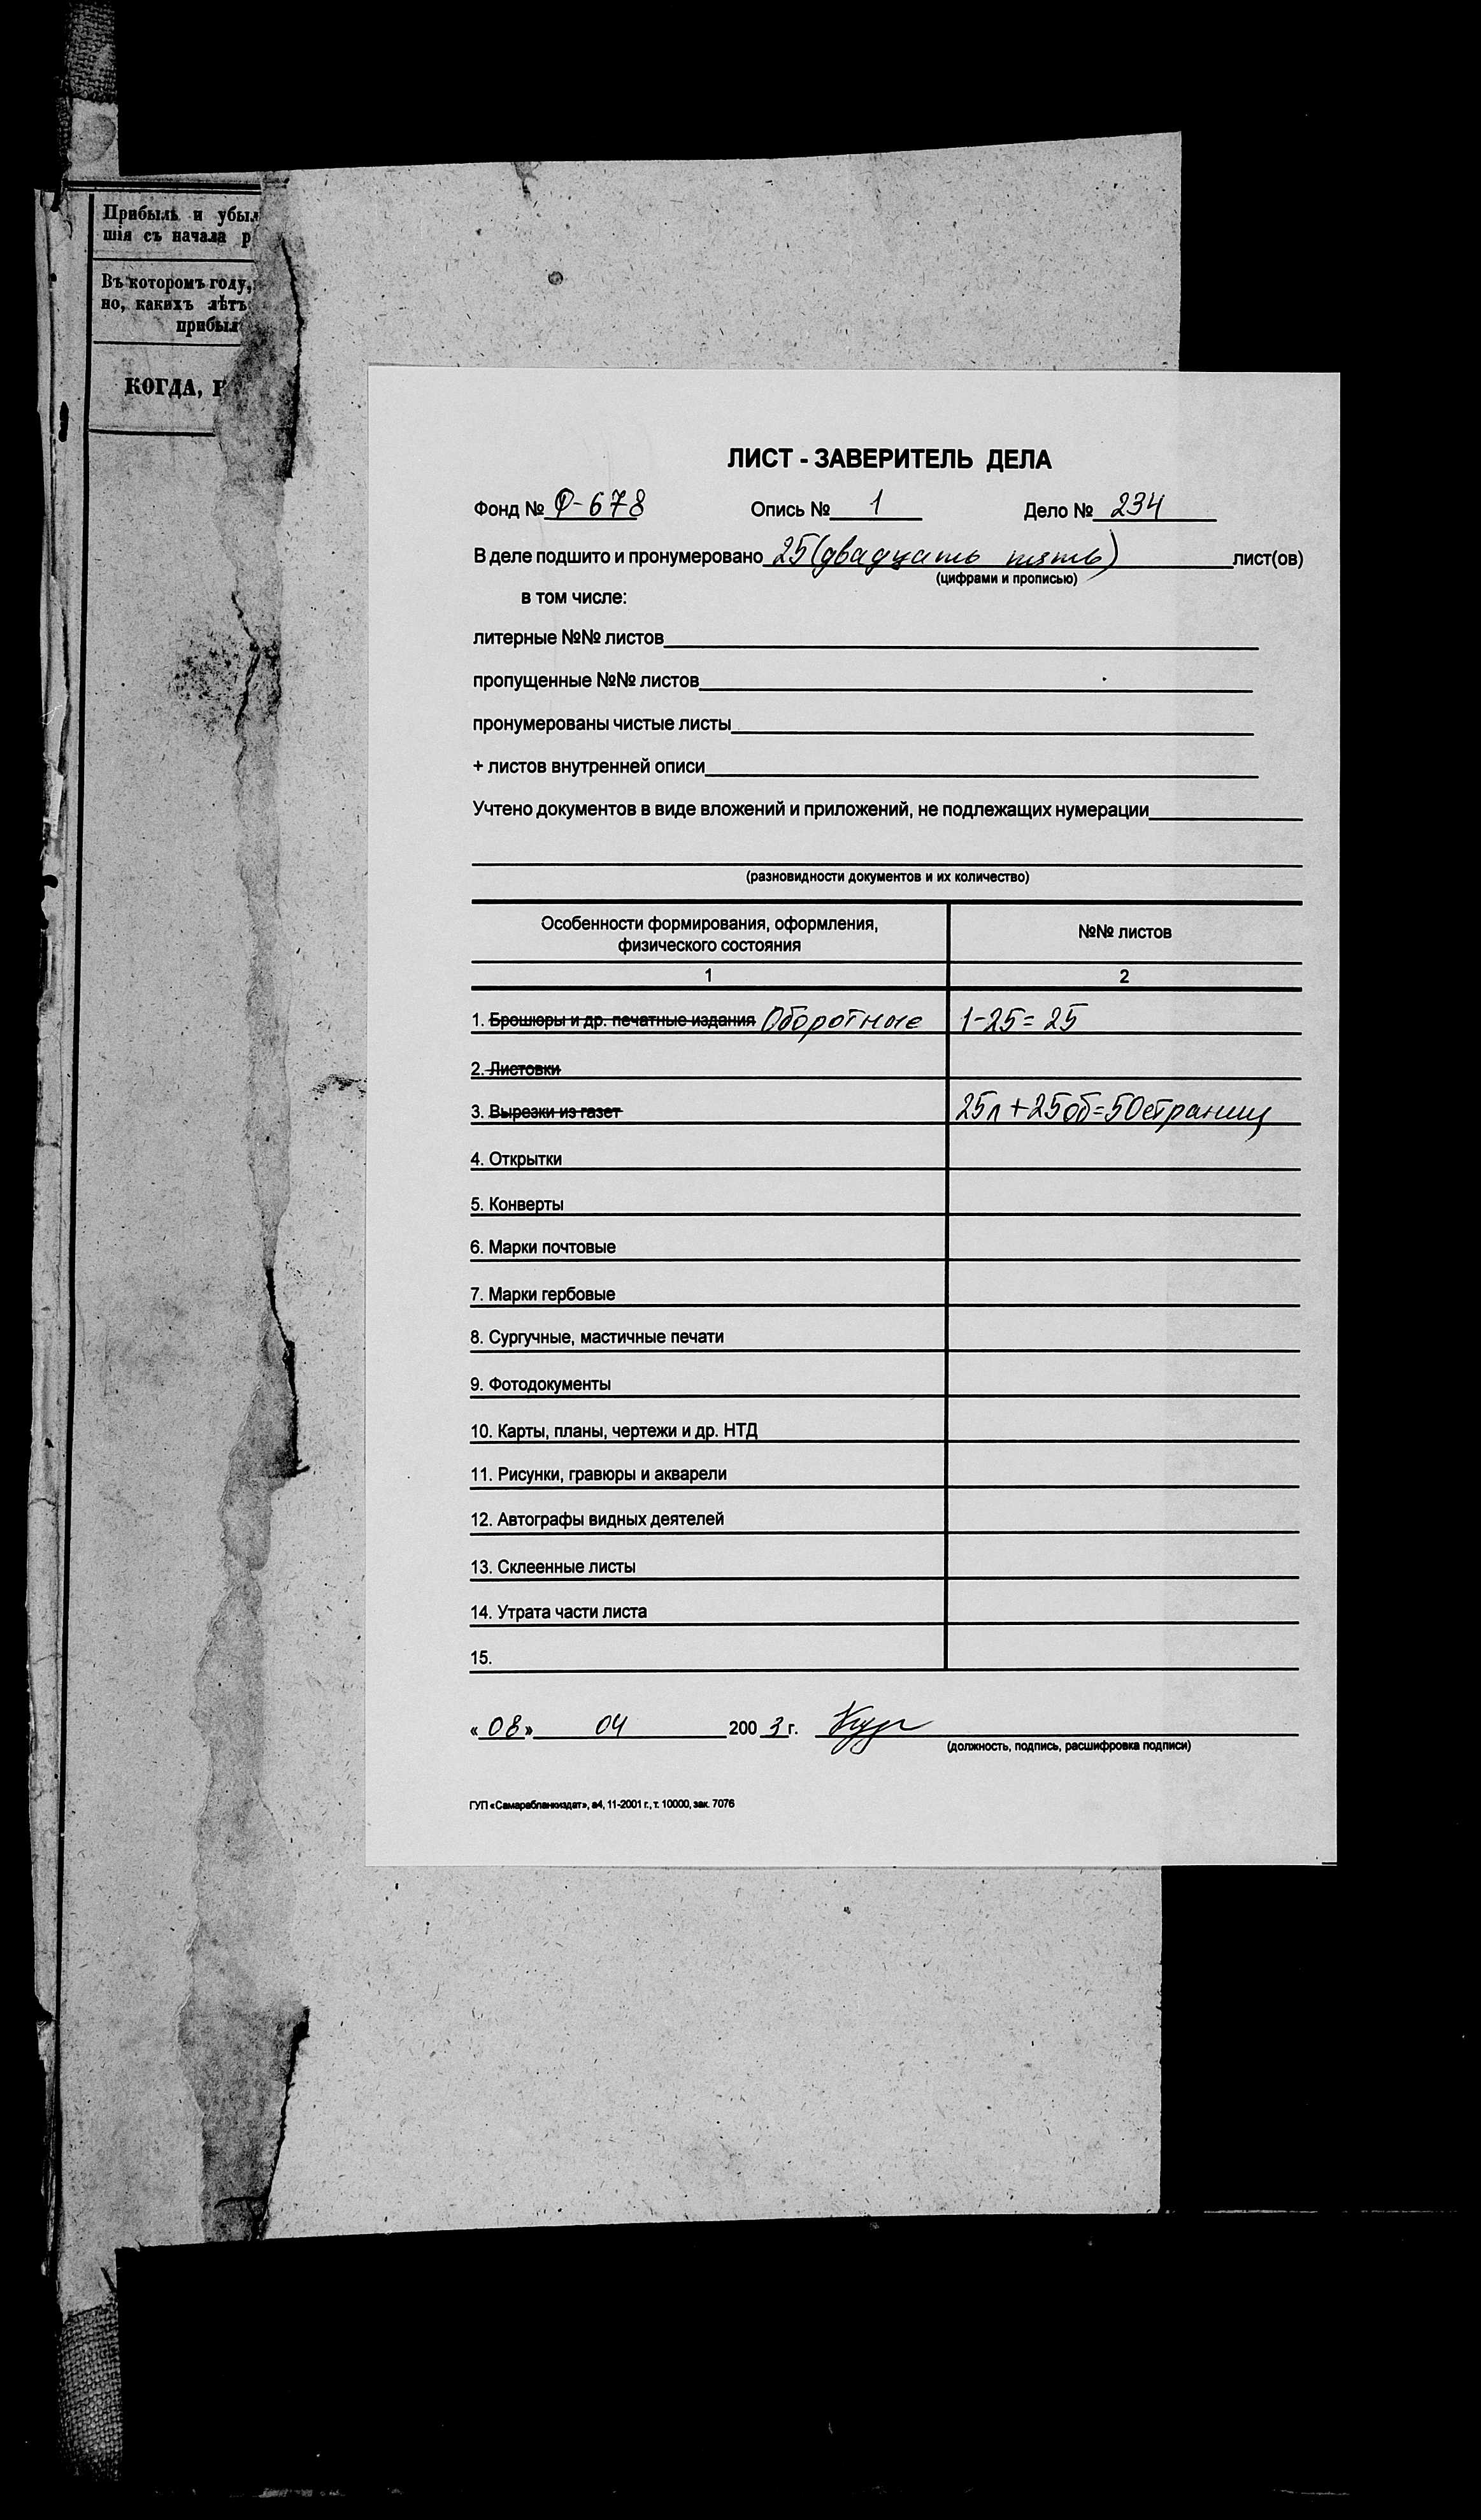 Прибыль и убыл
шія съ начала р
Въ которомъ году,
но, какихъ лѣтъ
прибыл
КОГДА,
ЛИСТ - ЗАВЕРИТЕЛЬ ДЕЛА
Фонд № Ф-678 Опись № 1 Дело № 234
В деле подшито и пронумеровано 25 (двадцать пять) лист(ов)
(цифрами и прописью)
в том числе:
литерные №№ листов
пропущенные №№ листов
пронумерованы чистые листы
+ листов внутренней описи
Учтено документов в виде вложений и приложений, не подлежащих нумерации
(разновидности документов и их количество)
Особенности формирования, оформления, №№ листов
физического состояния
1 2
1. Брошюры и др. печатные издания Оборотные 1-25=25
2. Листовки
3. Вырезки из газет 25л+25об=50страниц
4. Открытки
5. Конверты
6. Марки почтовые
7. Марки гербовые
8. Сургучные, мастичные печати
9. Фотодокументы
10. Карты, планы, чертежи и др. НТД
11. Рисунки, гравюры и акварели
12. Автографы видных деятелей
13. Склеенные листы
14. Утрата части листа
15.
«08» 04 2003 г.
(должность, подпись, расшифровка подписи)
ГУП «Самарабланкиздат», а4, 11-2001 г., т. 10000, зак. 7076